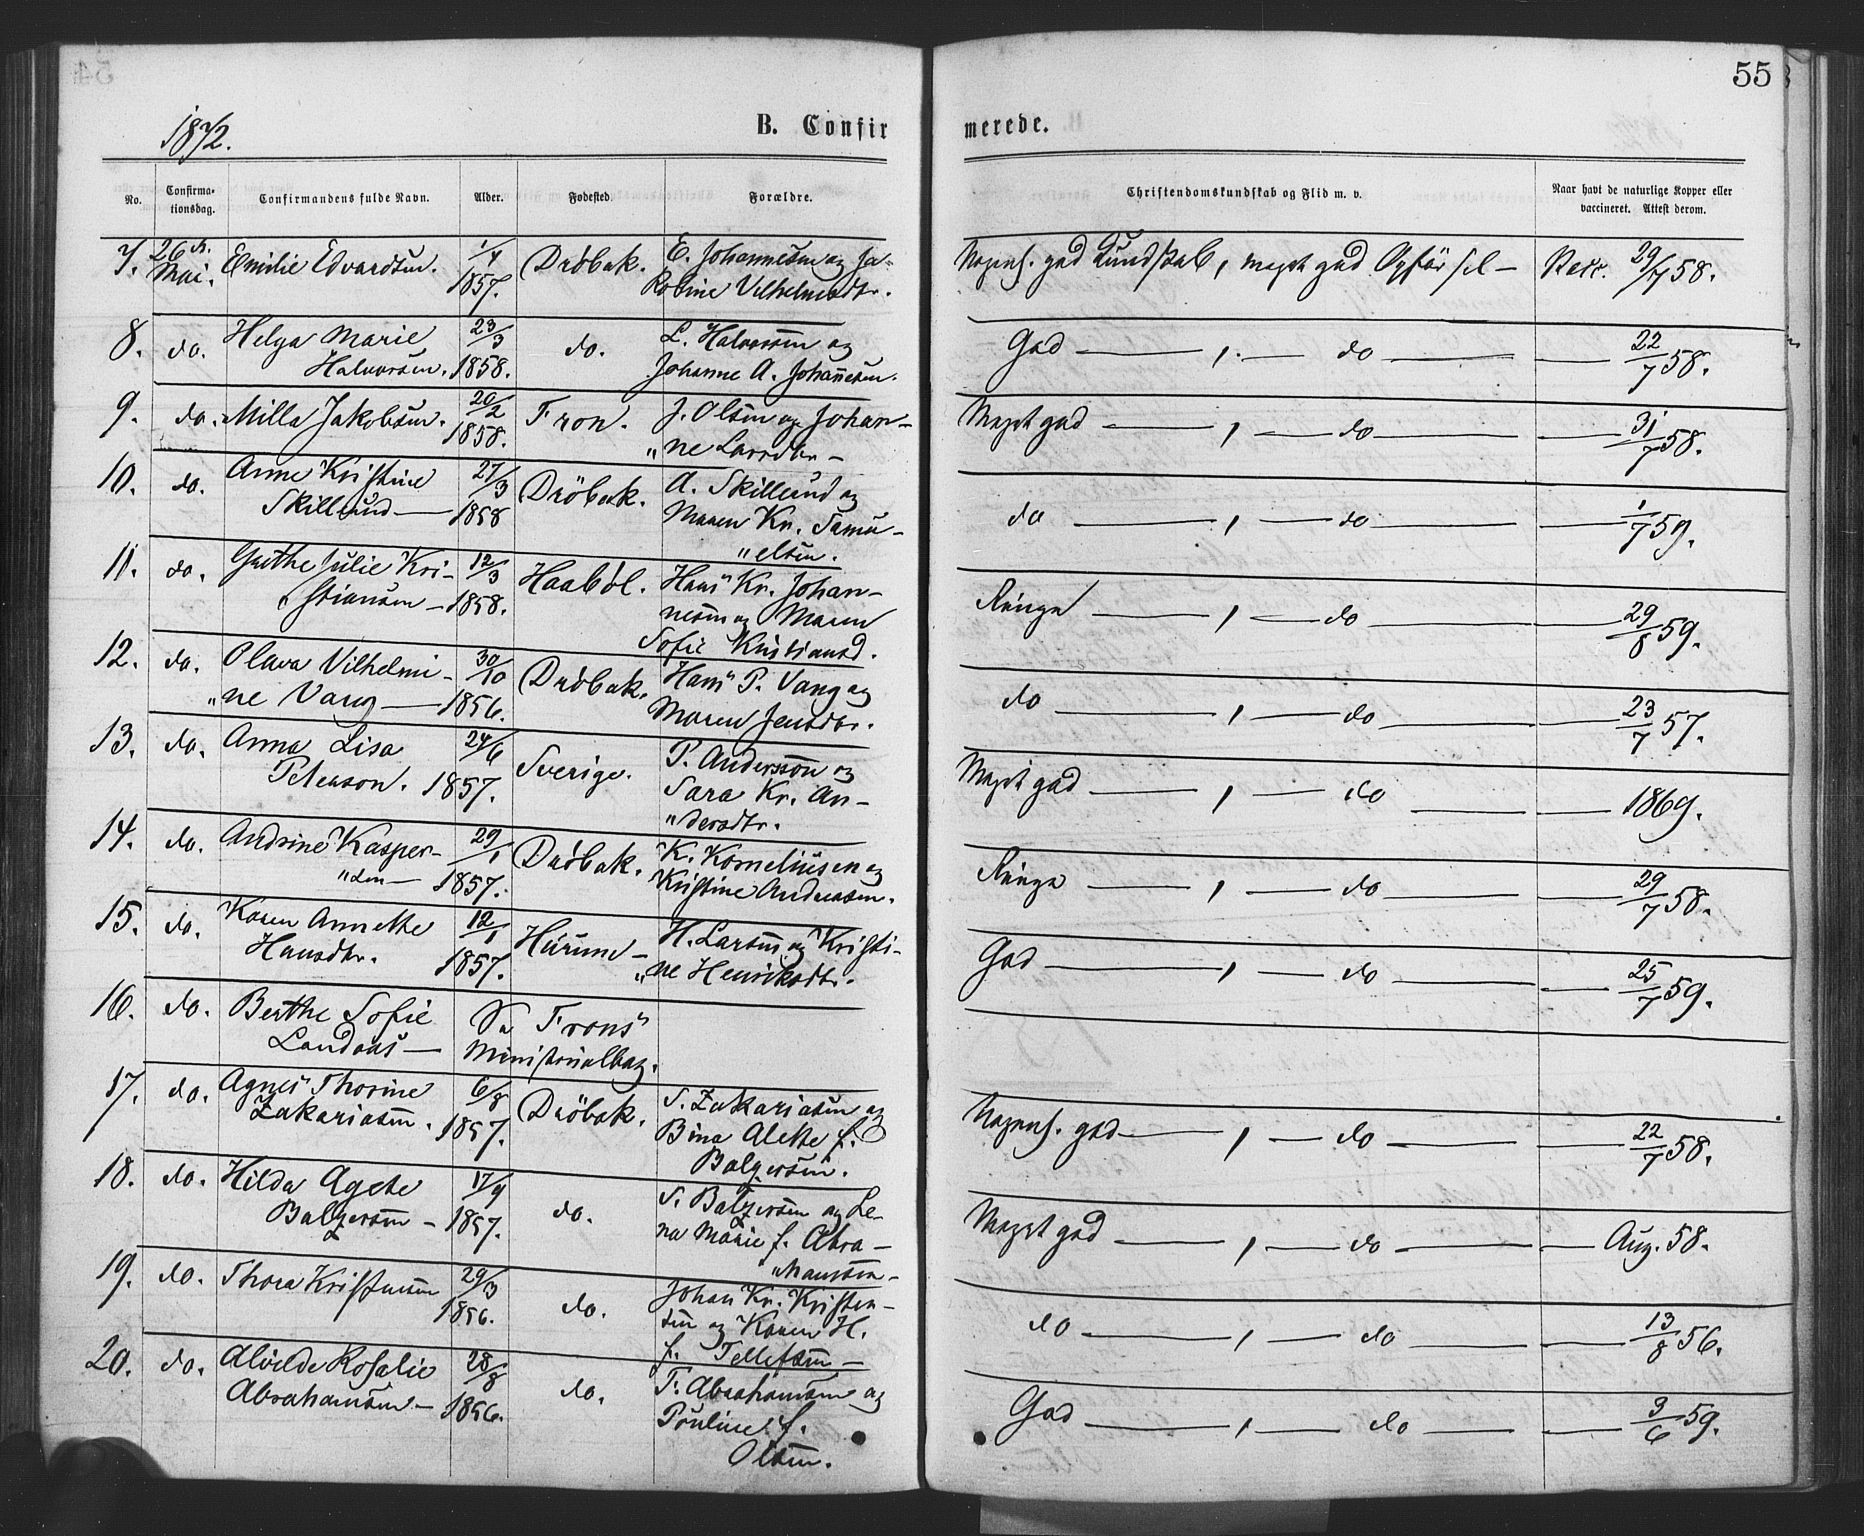 55
1872.
B. Confirmerede.
No. Confirmationsdag. Confirmandens fulde Navn. Alder. Fødested. Forældre. Christendomskundskab og Flid m. v. Naar havt de naturlige Kopper eller vaccineret. Attest derom.
7. 26de Mai. Emilie Edvardsen. 1/4 1857. Dröbak. E. Johannesen og Jakobine Vilhelmsdtr. Nogenl. god Kundskab, meget god Opförsel — Vacc. 29/7 58.
8. do. Helga Marie Halvorsen. 23/3 1858. do. L. Halvorsen og Johanne A. Johannesen. God — , — do — 22/7 58.
9. do. Milla Jakobsen. 20/2 1858. Fron. J. Olsen og Johan-
„ne Larsdtr — Meget god — , — do — 31/7 58.
10. do. Anne Kristine Skillund — 27/3 1858 Dröbak. A. Skillund og Maren Kr. Samu-
„elsen. do — , — do — 1/7 59.
11. do. Grethe Julie Kri-
stiansen — 12/3 1858. Haaböl. Hans Kr. Johan-
nesen og Maren
Sofie Kristiansd. Ringe — , — do — 29/8 59.
12. do. Olava Vilhelmi-
„ne Vang — 30/10 1856. Dröbak. Hans P. Vang og Maren Jensdtr. do — , — do — 23/7 57.
13. do. Anna Lisa Peterson. 24/6 1857. Sverige. P. Andersson og Sara Kr. An-
„dersdtr. Meget god — , — do — 1869.
14. do. Andrine Kasper-
„sen — 29/1 1857. Dröbak. K. Korneliusen og Kristine Andreasen. Ringe — , — do — 29/7 58.
15. do. Karen Annette Hansdtr. 12/1 1857. Hurum — H. Larsen og Kristi-
„ne Henriksdtr. God — , — do — 25/7 59.
16. do. Berthe Sofie Landaas — Se Frons Ministerialbog.
17. do. Agnes Thorine Zakariasen. 6/8 1857. Dröbak. S. Zakariasen og Bina Alette f. Balzersen. Nogenl. god — , — do — 22/7 58.
18. do. Hilda Agete Balzersen — 17/9 1857. do. S. Balzersen og Le-
na Marie f. Abra-
„hamsen — Meget god — , — do — Aug. 58.
19. do. Thora Kristensen 29/3 1856. do. Johan Kr. Kristen-
sen og Karen H.
f. Tellefsen — do — , — do — 13/8 56.
20. do. Alvilde Rosalie Abrahamsen — 28/8 1856. do. T. Abrahamsen og Pouline f. Olsen. God — , — do — 3/6 59.